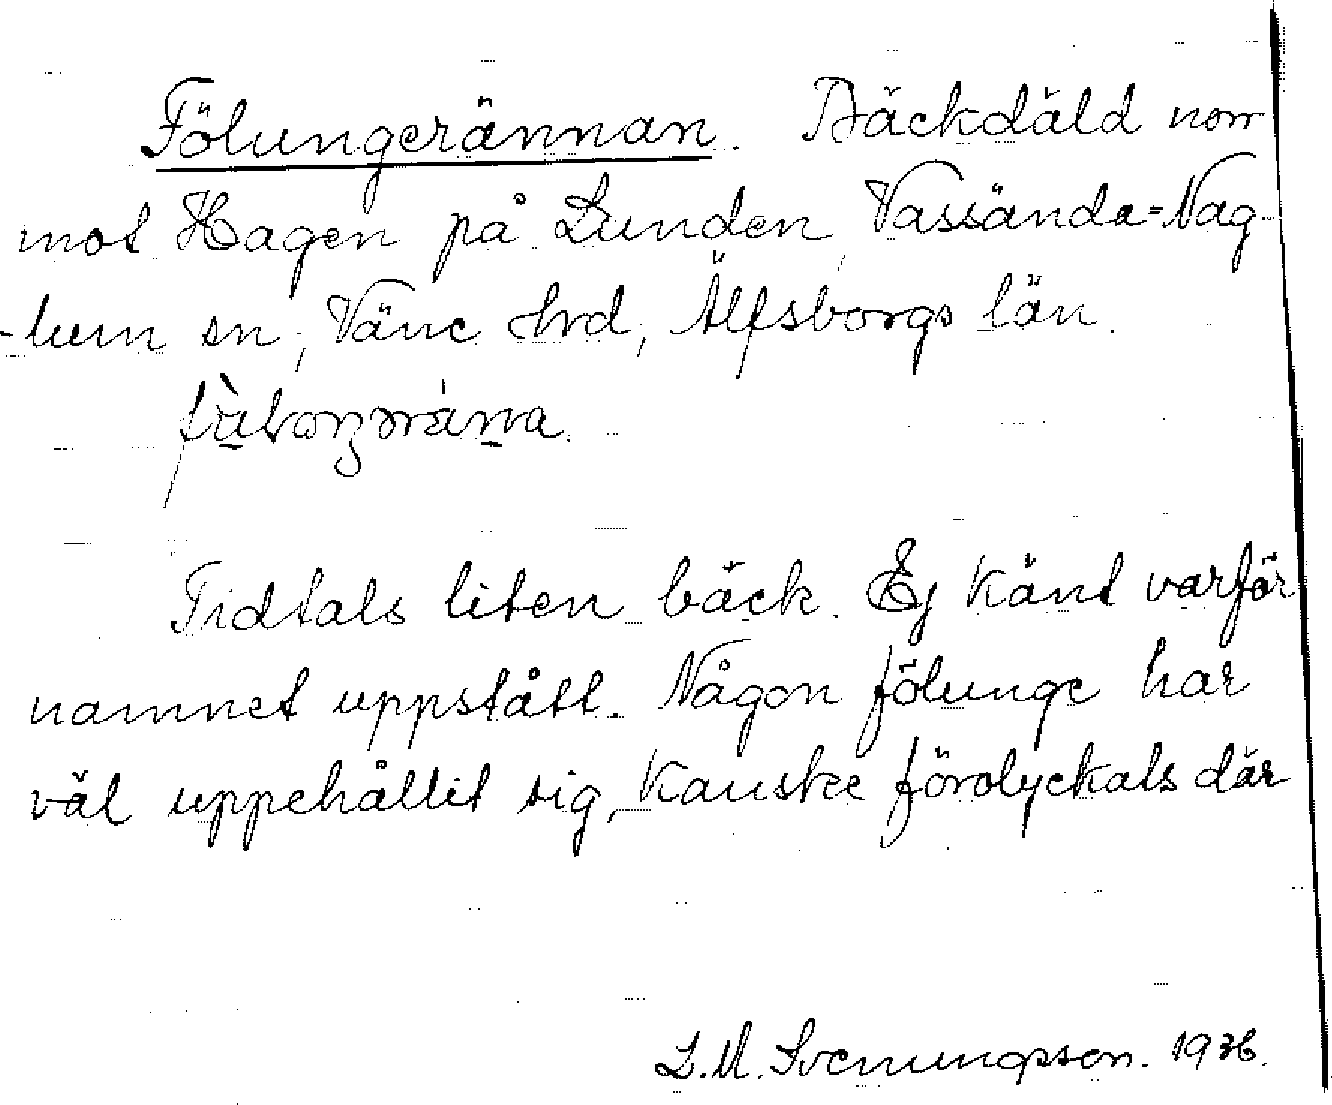 Fölungerännan. Bäckdäld norr
mot Hagen på Lunden, Vassända-Nag-
-lum sn, Väne hrd, Älfsborgs län.
Tidtals liten bäck. Ej känt varför
namnet uppstått. Någon fölunge har
väl uppehållit sig, kanske förolyckats där
L.M. Svenungsson. 1936.